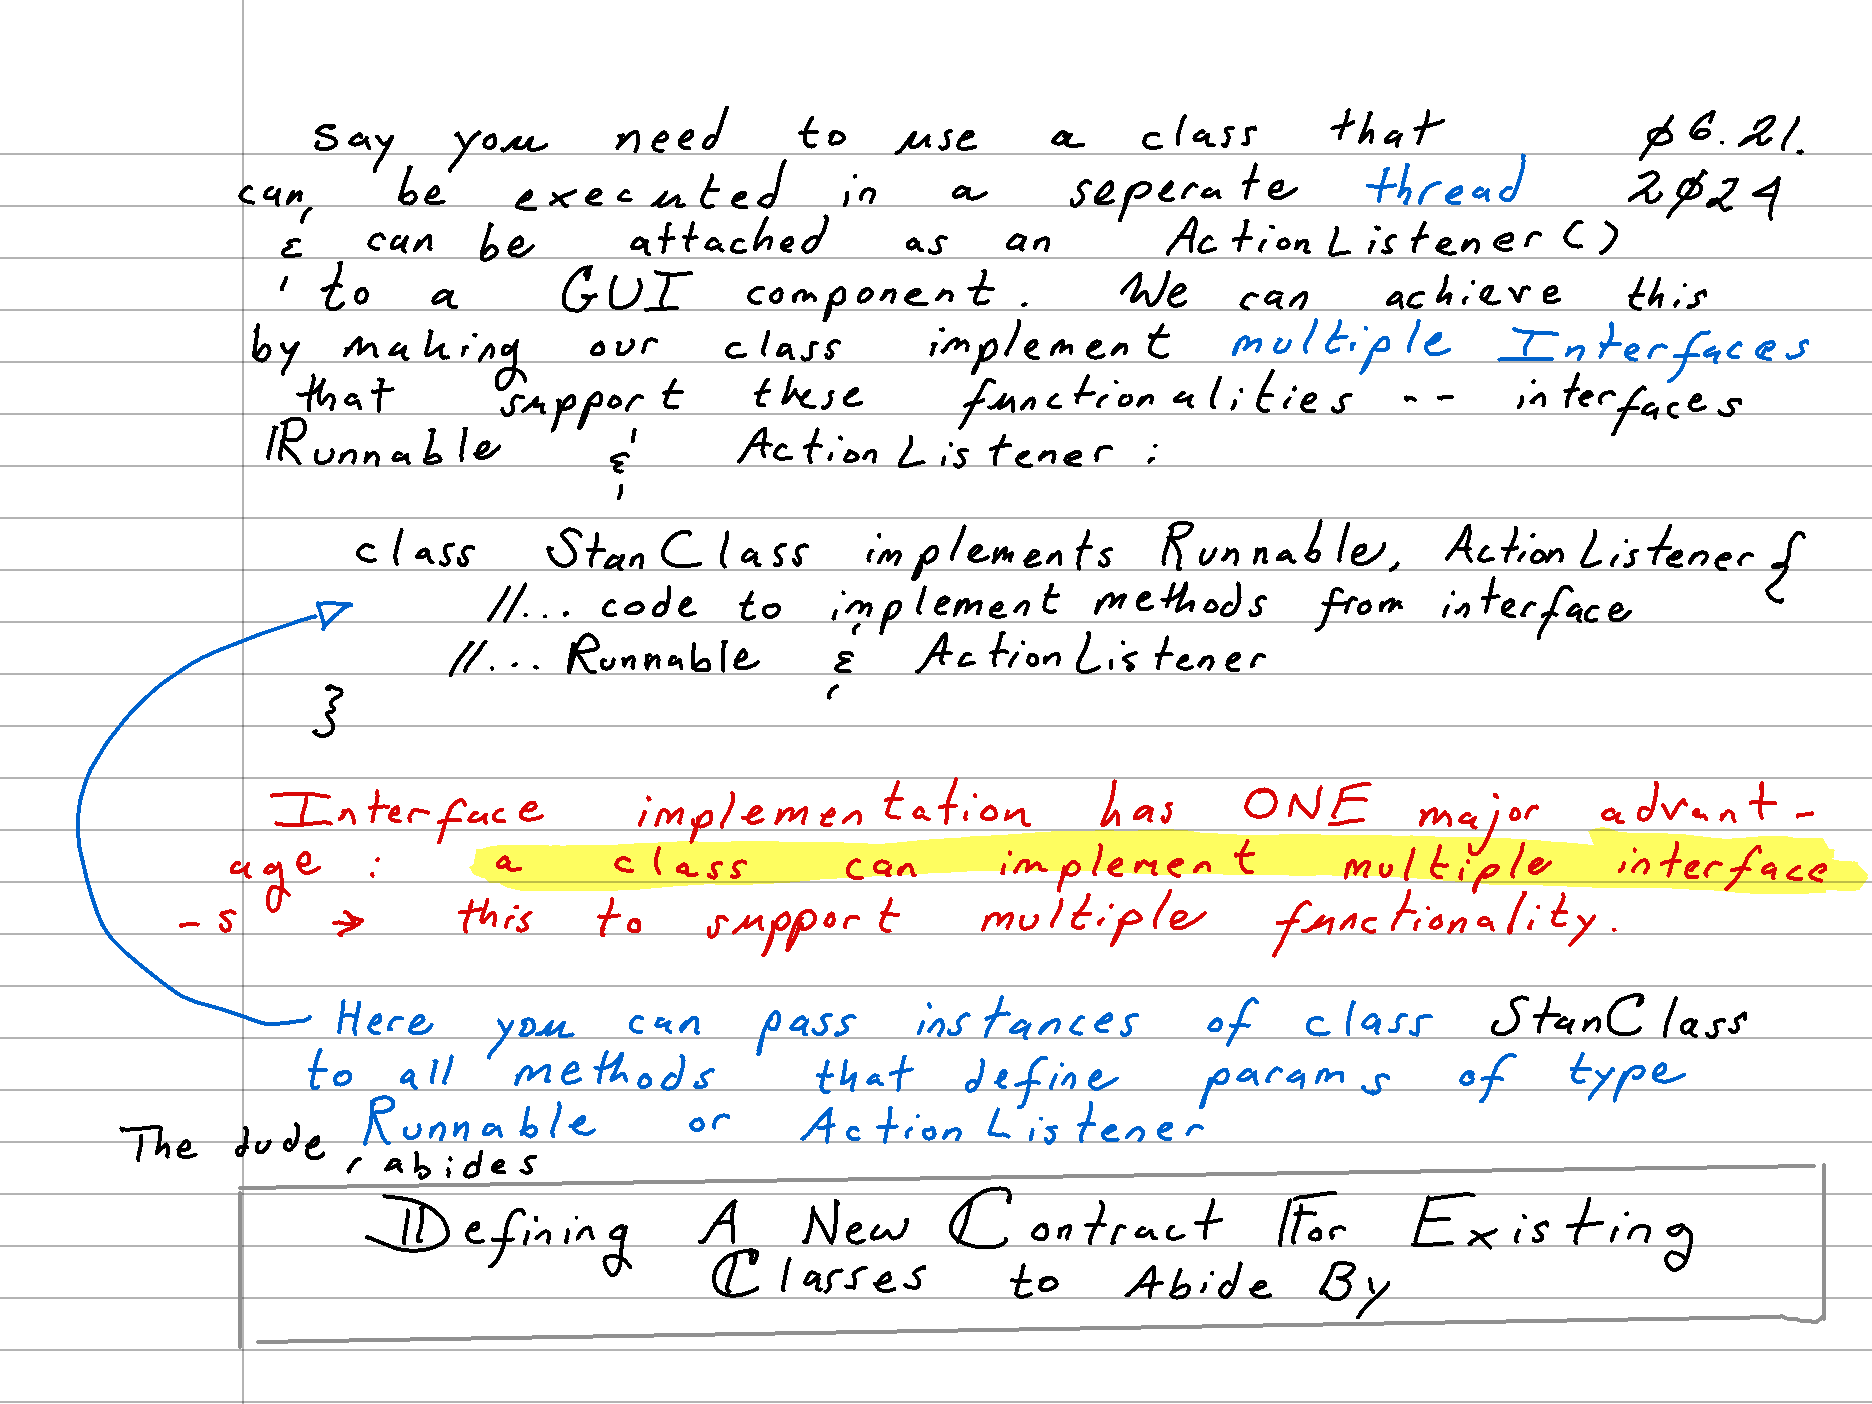 Say you need to use a class that ø6.21.
can be executed in a seperate thread 2ø24
& can be attached as an ActionListener()
to a GUI component. We can achieve this
by making our class implement multiple Interfaces
that support these functionalities -- interfaces
Runnable & ActionListener:
class StanClass implements Runnable, ActionListener {
//... code to implement methods from interface
//... Runnable & ActionListener
}
Interface implementation has ONE major advant-
age: a class can implement multiple interface
-s → this to support multiple functionality.
Here you can pass instances of class StanClass
to all methods that define params of type
Runnable or ActionListener
The dude, abides
Defining A New Contract For Existing
Classes to Abide By